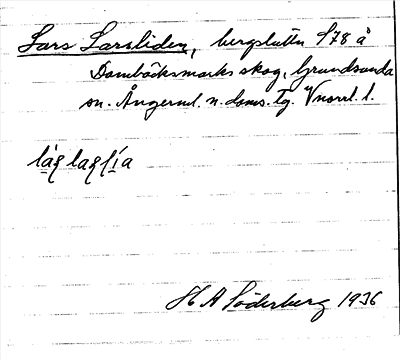 Lars Larsliden, bergslutten 578 å
Dombäcksmarks skog, Grundsunda
sn. Ångerml. n. doms. tg. Vnorrl. l.
H A Söderberg 1936